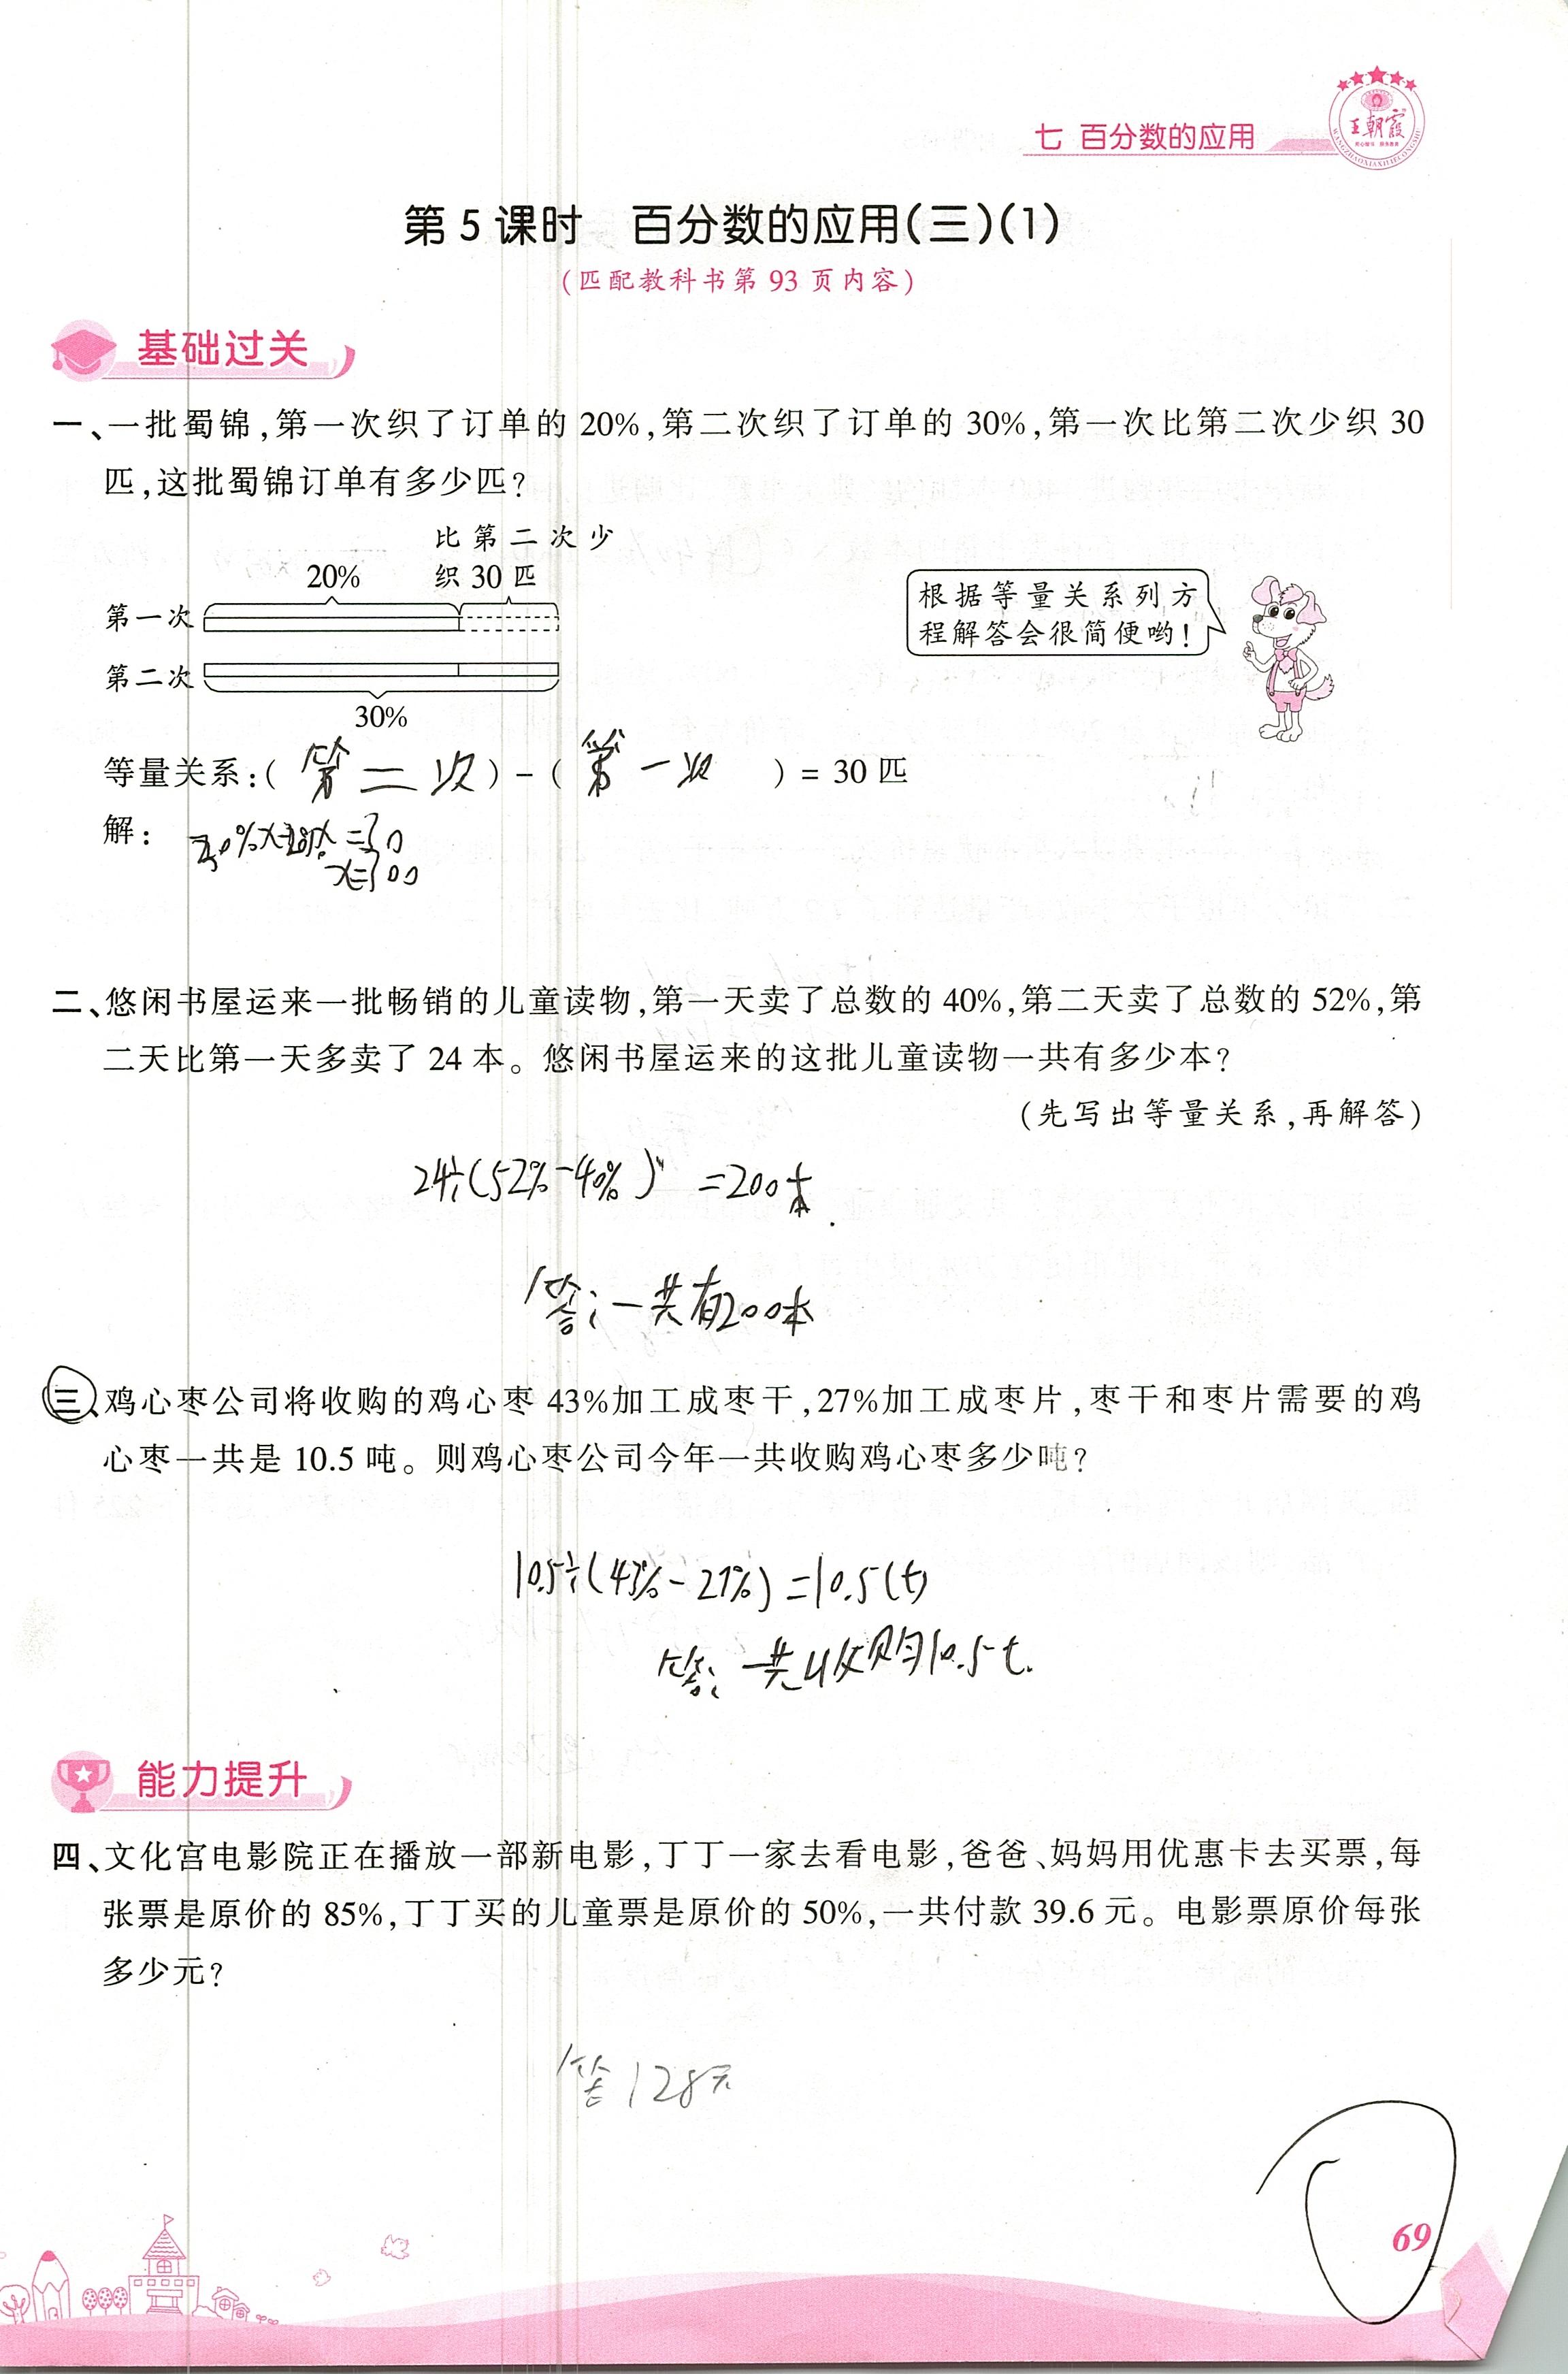 七 百分数的应用
王朝霞
第5课时 百分数的应用(三)(1)
(匹配教科书第93页内容)
基础过关
一、一批蜀锦,第一次织了订单的20%,第二次织了订单的30%,第一次比第二次少织30
匹,这批蜀锦订单有多少匹?
比第二次少
20% 织30匹
第一次
第二次
30%
根据等量关系列方
程解答会很简便哟!
等量关系:(第二次)-(第一次)=30匹
解: 30%x-20%x=30
x=300
二、悠闲书屋运来一批畅销的儿童读物,第一天卖了总数的40%,第二天卖了总数的52%,第
二天比第一天多卖了24本。悠闲书屋运来的这批儿童读物一共有多少本?
(先写出等量关系,再解答)
24÷(52%-40%)=200本
答:一共有200本
三、鸡心枣公司将收购的鸡心枣43%加工成枣干,27%加工成枣片,枣干和枣片需要的鸡
心枣一共是10.5吨。则鸡心枣公司今年一共收购鸡心枣多少吨?
10.5÷(43%-27%)=10.5(t)
答:一共收购10.5t.
能力提升
四、文化宫电影院正在播放一部新电影,丁丁一家去看电影,爸爸、妈妈用优惠卡去买票,每
张票是原价的85%,丁丁买的儿童票是原价的50%,一共付款39.6元。电影票原价每张
多少元?
答128元
69